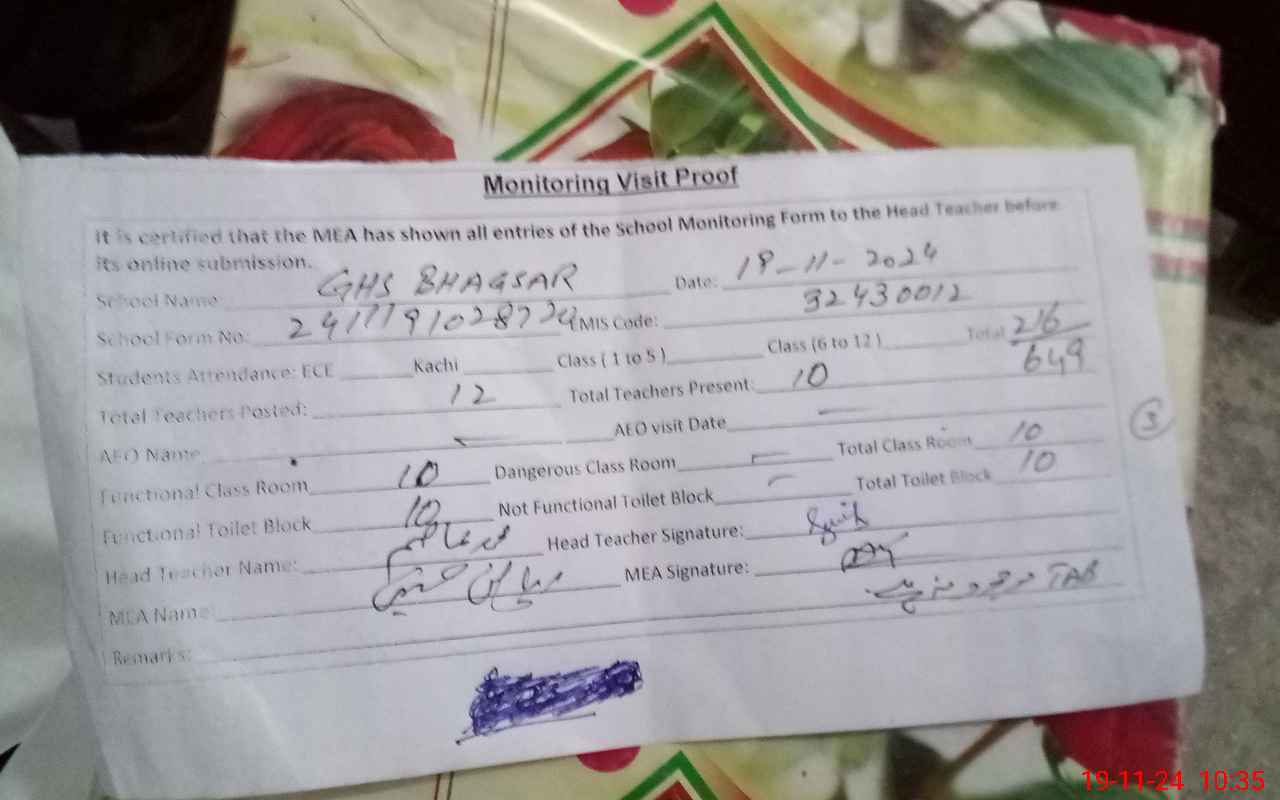 Monitoring Visit Proof
It is certified that the MEA has shown all entries of the School Monitoring Form to the Head Teacher before
its online submission.
School Name GHS BHAGSAR Date: 19-11-2024
School Form No: EMIS Code: 32430012
Students Attendance: ECE Kachi Class ( 1 to 5 ) Class (6 to 12 ) Total 216/649
Total Teachers Posted: 12 Total Teachers Present: 10
AEO Name AEO visit Date
3
Functional Class Room 10 Dangerous Class Room Total Class Room 10
Functional Toilet Block 10 Not Functional Toilet Block Total Toilet Block 10
Head Teacher Name: Head Teacher Signature:
MEA Name: MEA Signature:
Remarks: TAB
19-11-24 10:35